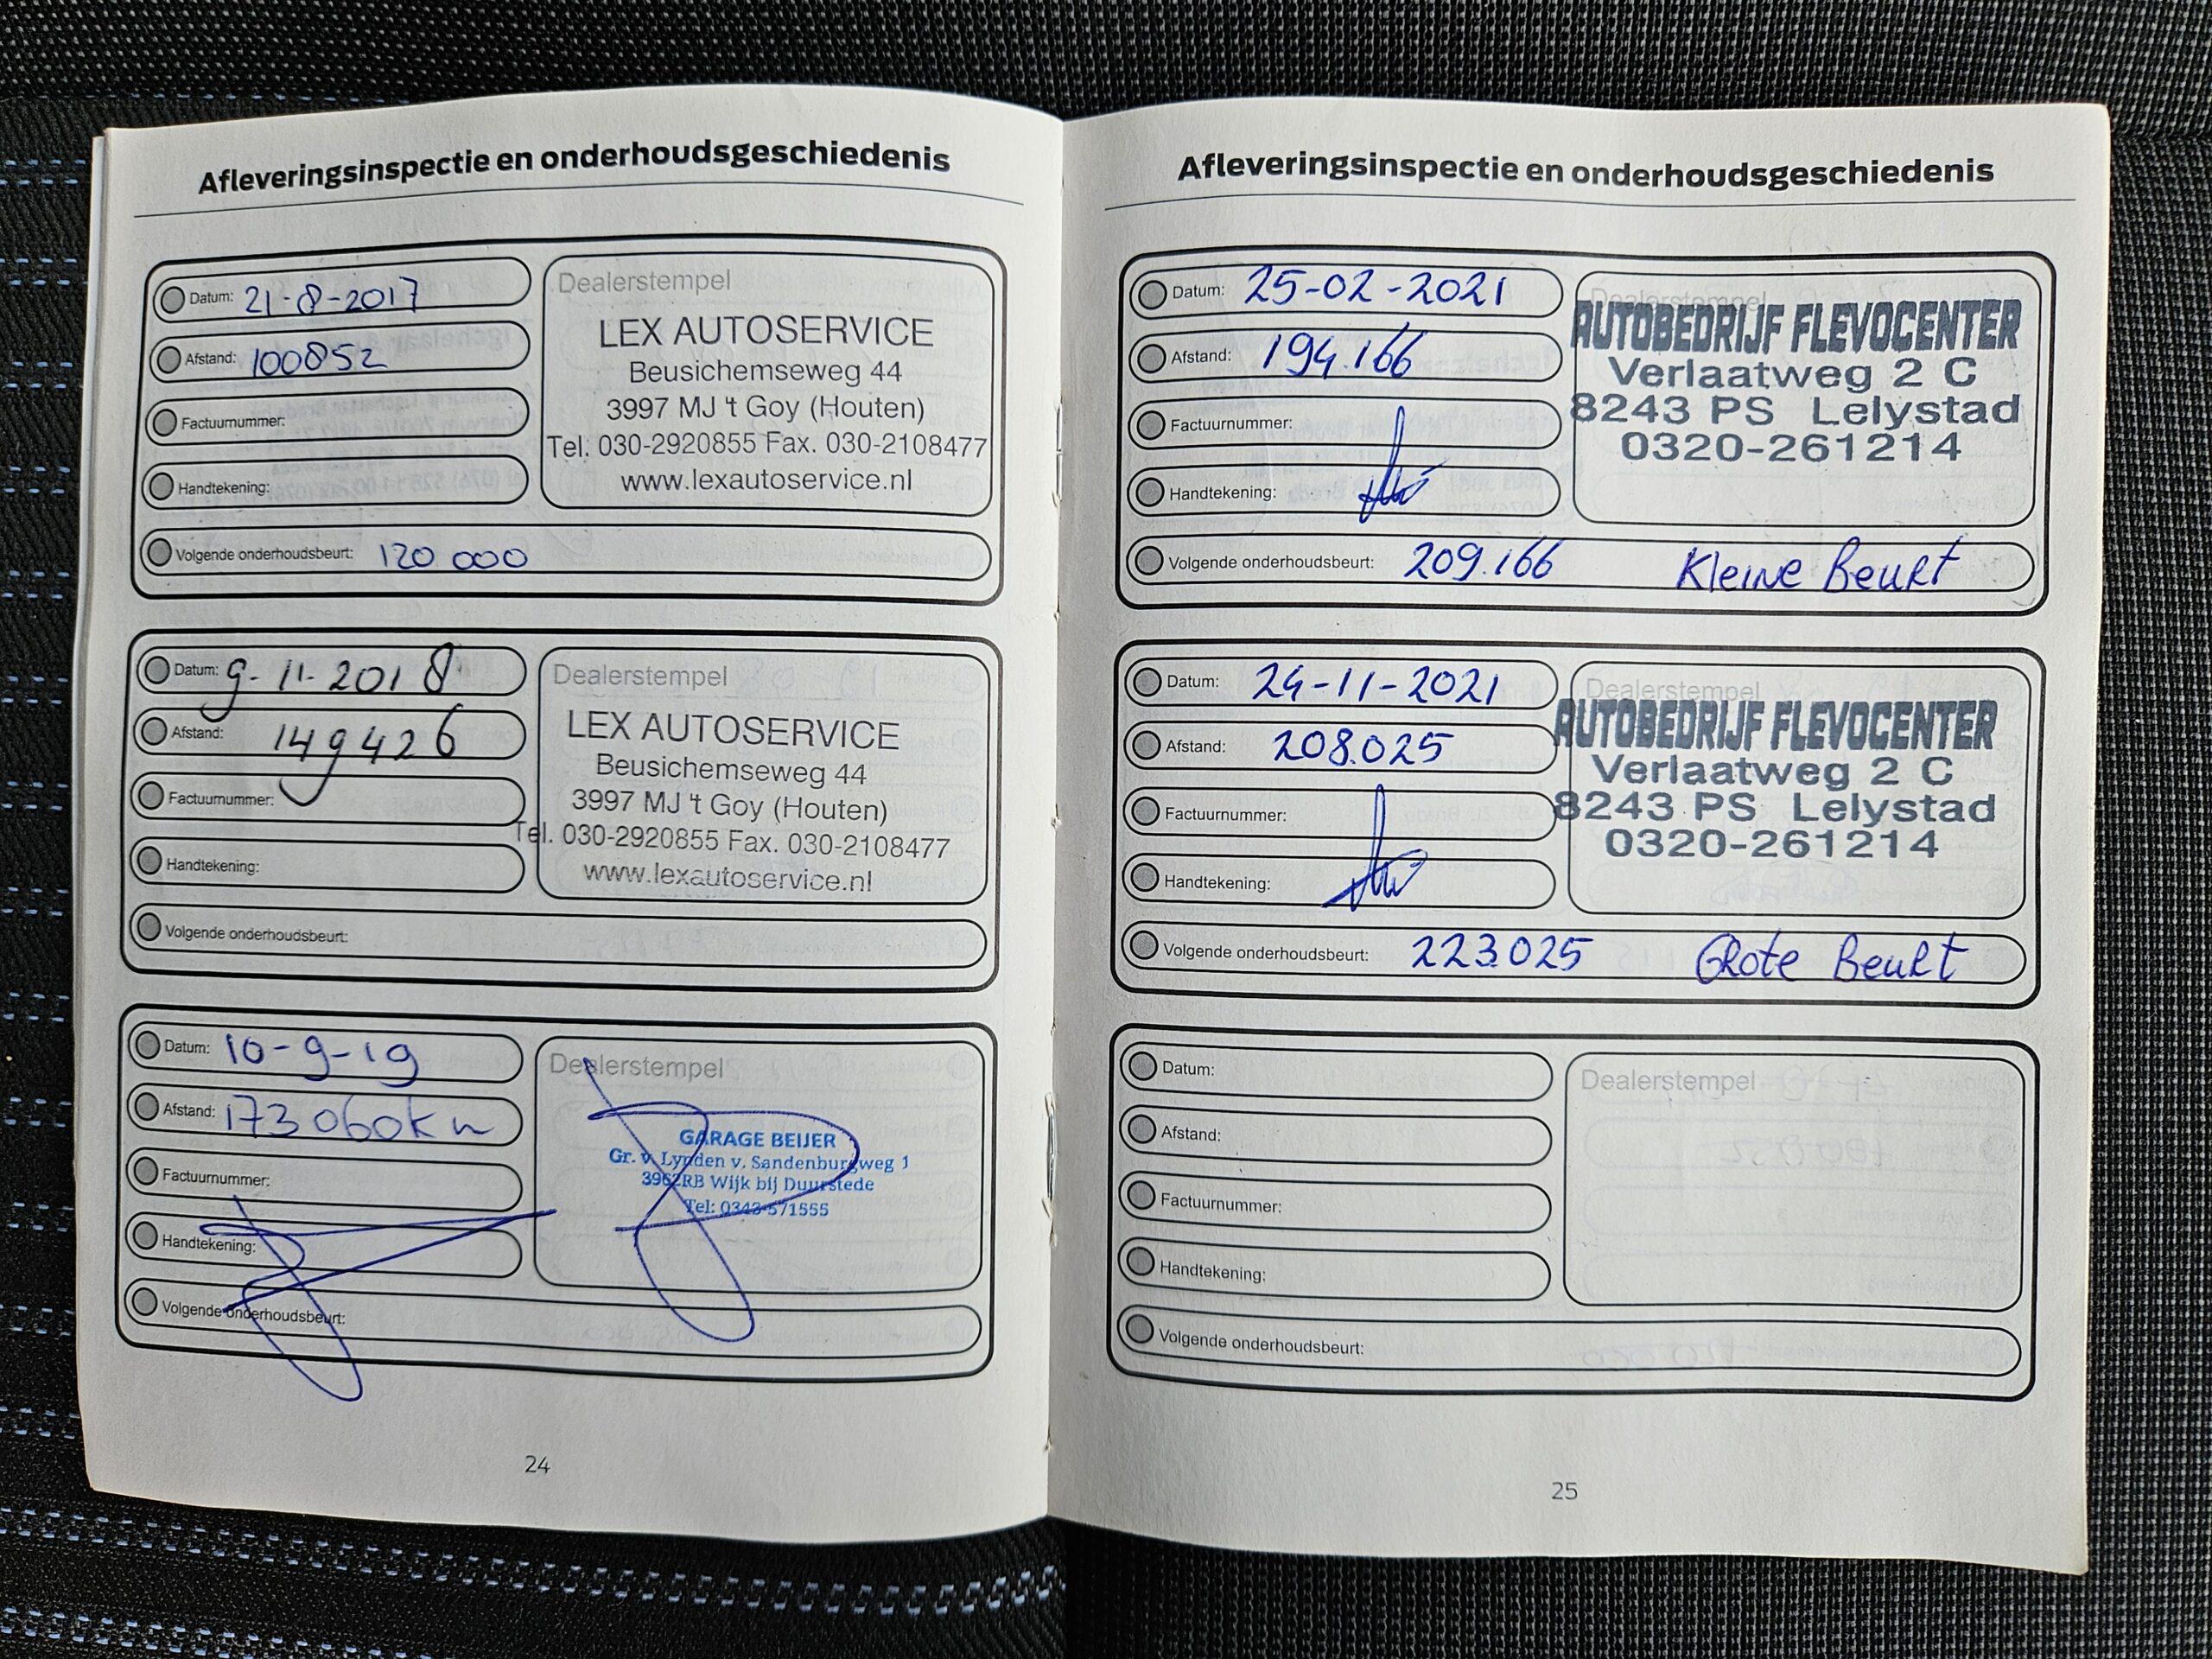 Afleveringsinspectie en onderhoudsgeschiedenis
Datum: 21-8-2017
Afstand: 100852
Factuurnummer:
Handtekening:
Dealerstempel
LEX AUTOSERVICE
Beusichemseweg 44
3997 MJ 't Goy (Houten)
Tel. 030-2920855 Fax. 030-2108477
www.lexautoservice.nl
Volgende onderhoudsbeurt: 120 000
Datum: 9-11-2018
Afstand: 149426
Factuurnummer:
Handtekening:
Dealerstempel
LEX AUTOSERVICE
Beusichemseweg 44
3997 MJ 't Goy (Houten)
Tel. 030-2920855 Fax. 030-2108477
www.lexautoservice.nl
Volgende onderhoudsbeurt:
Datum: 10-9-19
Afstand: 173060km
Factuurnummer:
Handtekening:
Dealerstempel
GARAGE BEIJER
Gr. v. Lynden v. Sandenburgweg 1
3962RB Wijk bij Duurstede
Tel: 0343-571555
Volgende onderhoudsbeurt:
24
Afleveringsinspectie en onderhoudsgeschiedenis
Datum: 25-02-2021
Afstand: 194.166
Factuurnummer:
Handtekening:
Dealerstempel
AUTOBEDRIJF FLEVOCENTER
Verlaatweg 2 C
8243 PS Lelystad
0320-261214
Volgende onderhoudsbeurt: 209.166 Kleine Beurt
Datum: 24-11-2021
Afstand: 208.025
Factuurnummer:
Handtekening:
Dealerstempel
AUTOBEDRIJF FLEVOCENTER
Verlaatweg 2 C
8243 PS Lelystad
0320-261214
Volgende onderhoudsbeurt: 223.025 Grote Beurt
Datum:
Afstand:
Factuurnummer:
Handtekening:
Dealerstempel
Volgende onderhoudsbeurt:
25